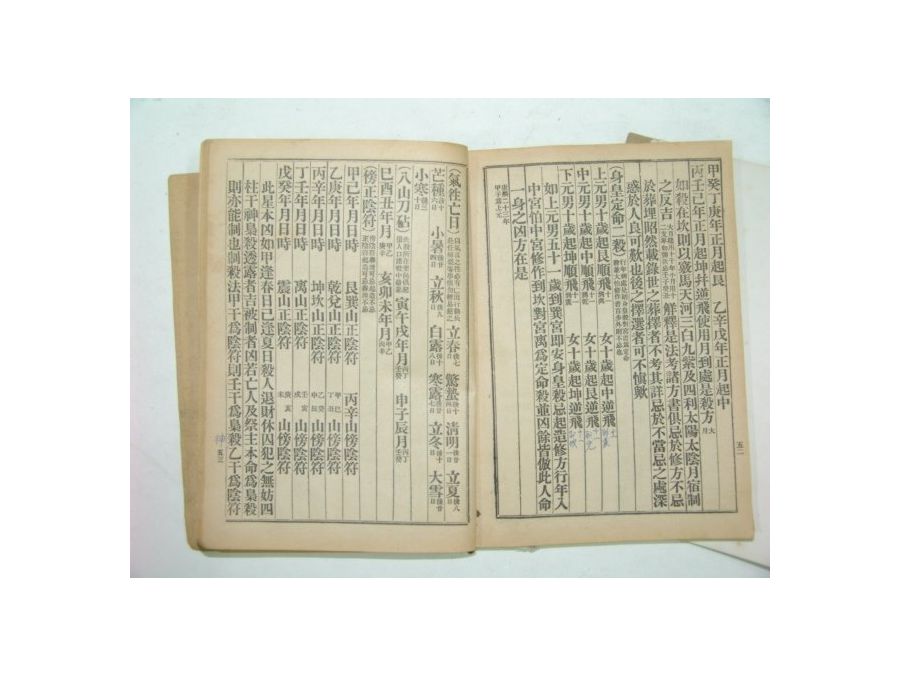 甲癸丁庚年正月起艮 乙辛戊年正月起中
丙壬己年正月起坤並逆飛使用月到處是殺方
如殺在坎則以竅馬天河三白九紫及四利太陽太陰月宿制
之反吉 解釋是法考諸方書俱忌於修方不忌
於葬埋昭然載錄世之葬擇者不考其詳忌於不當忌之處深
惑於人良可歎也後之擇選者可不愼歟
(身皇定命二殺)
上元男十歲起艮順飛 女十歲起中逆飛
中元男十歲起中順飛 女十歲起艮逆飛
下元男十歲起坤順飛 女十歲起坤逆飛
如上元男五十一歲到巽宮即安身皇殺忌起造修方行年入
中宮怕中宮修作到坎對宮离爲定命殺並凶餘皆倣此人命
一身之凶方在是
康熙二十三年
甲子爲上元
五二
(氣徃亡日) 立春後七日 驚蟄後十四日 清明後廿一日 立夏後八日
芒種後十六日 小暑後廿四日 立秋後九日 白露後十八日 寒露後廿七日 立冬後十日 大雪後廿日
小寒後三十日
(八山刀砧) 寅午戌年月丙丁 申子辰月壬癸
巳酉丑年月甲乙庚辛 亥卯未年月甲乙丙辛
(傍正陰符)
甲己年月日時 艮巽山正陰符 丙辛山傍陰符
乙庚年月日時 乾兌山正陰符 甲巳丁丑山傍陰符
丙辛年月日時 坤坎山正陰符 乙癸申辰山傍陰符
丁壬年月日時 离山正陰符 壬寅戌山傍陰符
戊癸年月日時 震山正陰符 庚亥未山傍陰符
此星本凶如甲逢春日己逢夏日殺人退財休囚犯之無妨四
柱干神梟殺透露者吉被制者凶若亡人及祭主本命爲梟殺
則亦能制也制殺法甲干爲陰符則壬干爲梟殺乙干爲陰符
五三